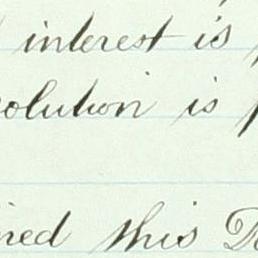 interest is
olution is
ned this